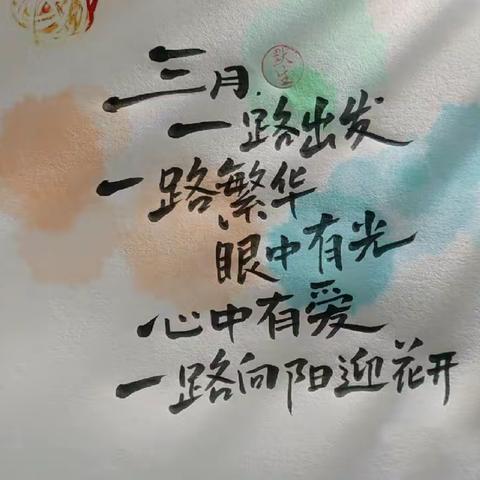 三月.
一路出发
一路繁华
眼中有光
心中有爱
一路向阳迎花开